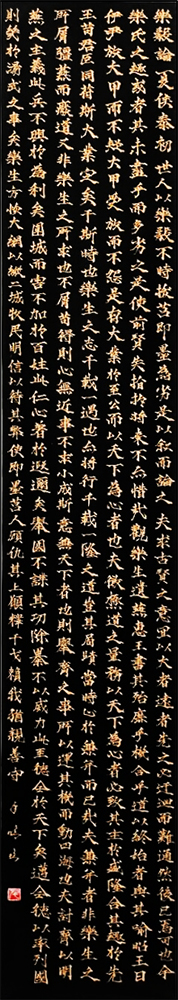 樂毅論 夏侯泰初 世人以樂毅不時拔莒即墨為劣是以叙而論之 夫求古賢之意宜以大者遠者先之必迂迴而難通然後已焉可也今
樂氏之趣或者其未盡乎而多劣之是使前賢失指於將來不亦惜哉觀樂生遺燕惠王書其殆庶乎機合乎道以終始者與其喻昭王曰
伊尹放大甲而不疑大甲受放而不怨是存大業於至公而以天下為心者也夫欲極道之量務以天下為心者必致其主於盛隆合其趣於先
王苟君臣同符斯大業定矣于斯時也樂生之志千載一遇也亦將行千載一隆之道豈其局蹟當時止於兼并而已哉夫兼并者非樂生之
所屑彊燕而廢道又非樂生之所求也不屑苟得則心無近事不求小成斯意兼天下者也則舉齊之事所以運其機而動四海也夫討齊以明
燕之主義此兵不興於為利矣圍城而害不加於百姓此仁心著於遐邇矣舉國不謀其功除暴不以威力此至德令於天下矣邁全德以率列國
則幾於湯武之事矣樂生方恢大綱以縱二城牧民明信以待其弊使即墨莒人顧仇其上願釋干戈賴我猶親善守